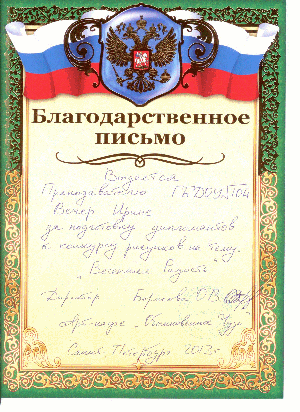 Благодарственное
письмо
Выдается
Преподавателю ГБДОУ №64
Вечер Ирине
за подготовку дипломантов
к конкурсу рисунков на тему
"Весенняя Радость"
Директор О.В.
Арт-кафе
Санкт-Петербург 2013г.